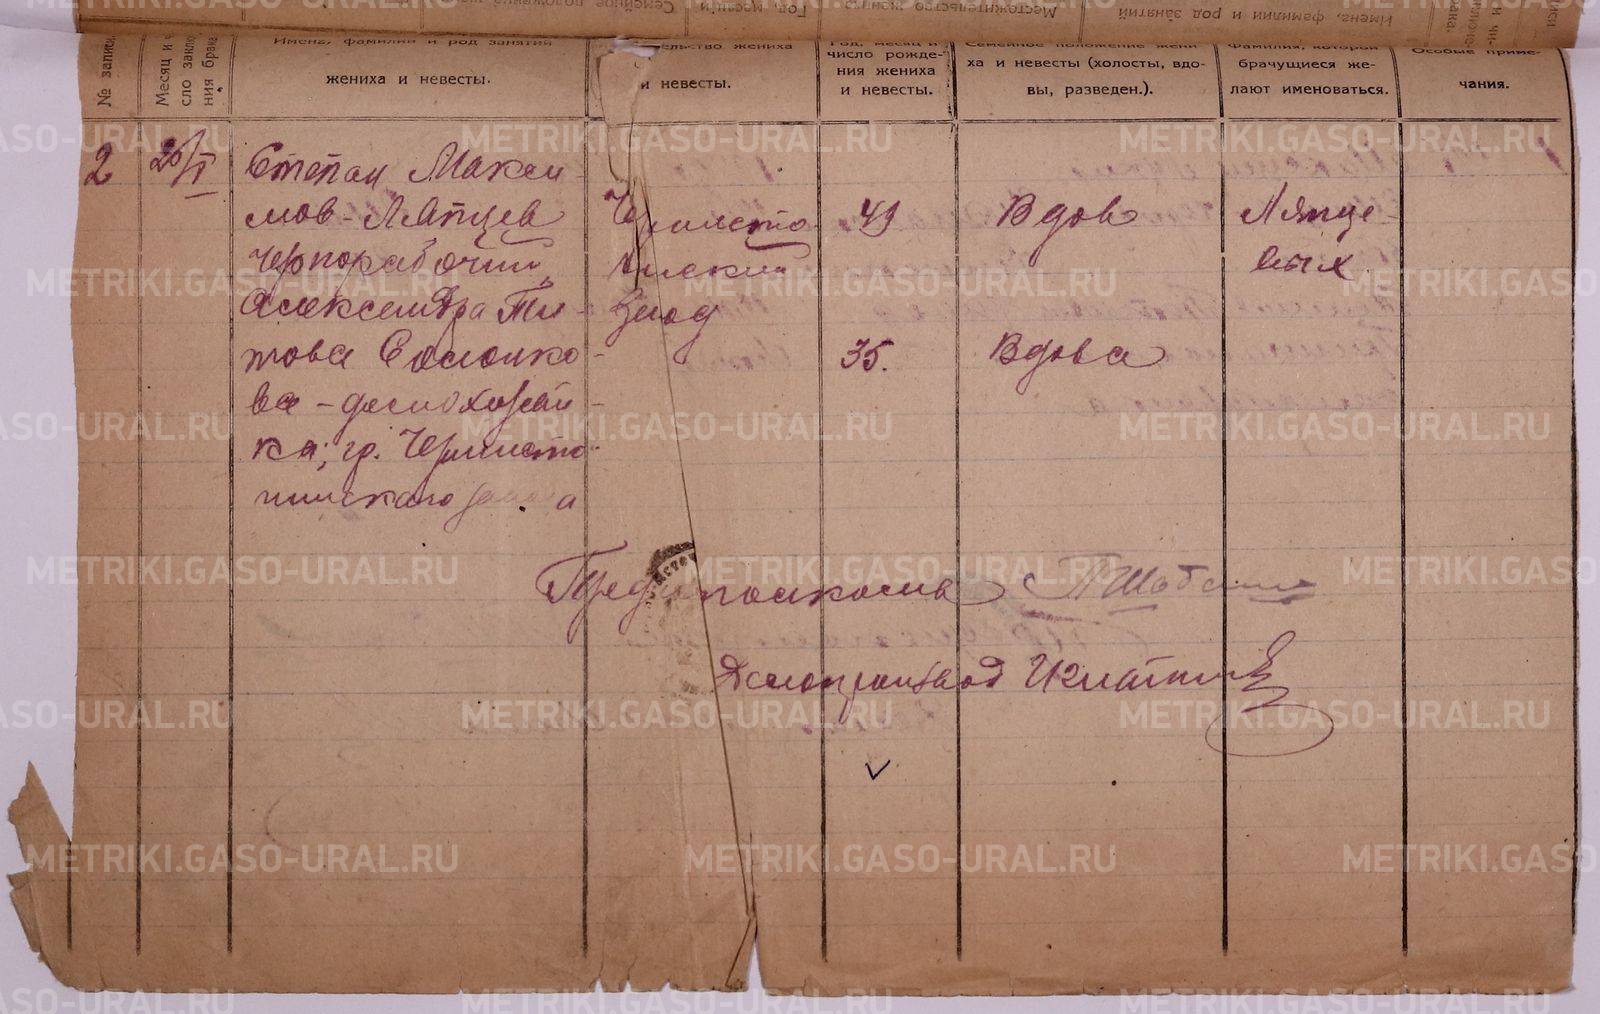 № записи.
Месяц и чи-
сло заклю
ния брака
Имена, фамилии и род занятий
жениха и невесты.
ельство жениха
и невесты.
Год, месяц и
число рожде-
ния жениха
и невесты.
Семейное положение жени-
ха и невесты (холосты, вдо-
вы, разведен.).
Фамилия, которой
брачущиеся же-
лают именоваться.
Особые приме-
чания.
2
20/I
Степан Макси-
мов-Ляпцев
Чернорабочий,
Александра Ти-
това Солонко-
ва - домохозяй-
ка; гр. Черноисто-
чинскаго завода
Черноисто-
чинский
завод
49
35.
Вдов
Вдова
Ляпце
вых
Пред исполкома
Делопроизвод Игнатьев
METRIKI.GASO-URAL.RU